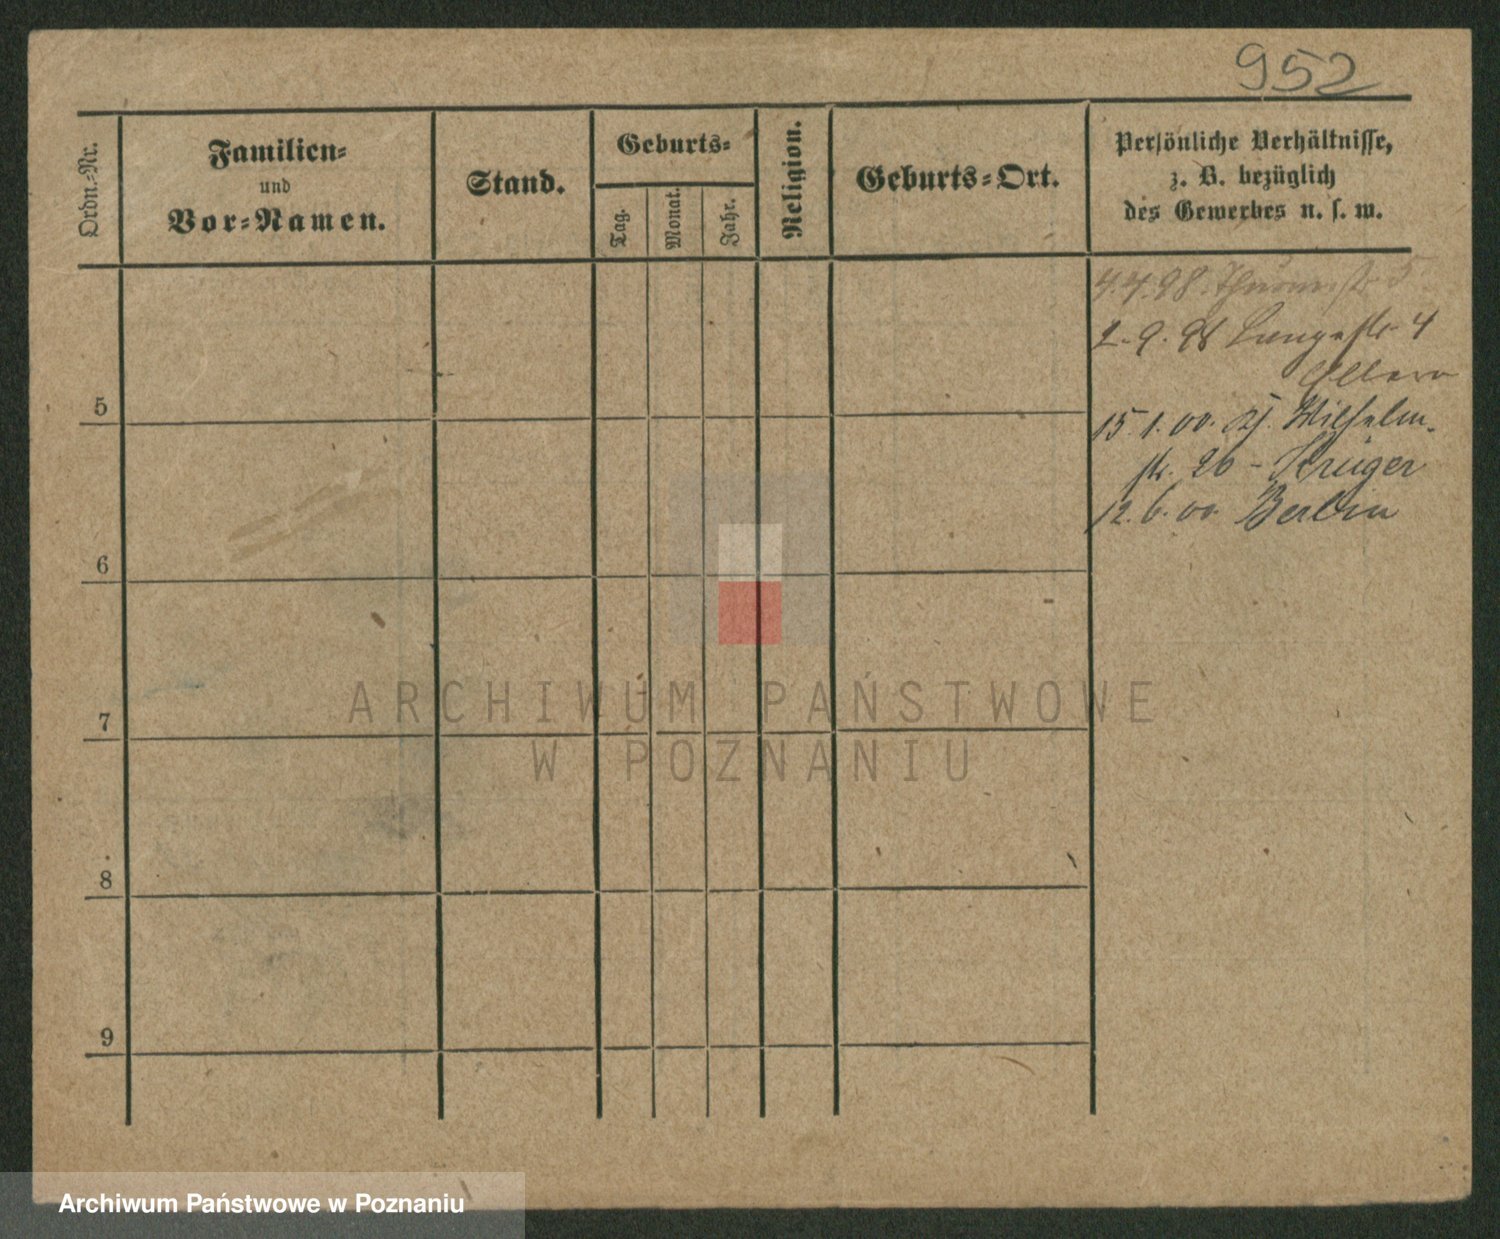 952
Ordn.-Nr.
Familien-
und
Vor-Namen.
Stand.
Geburts-
Tag.
Monat.
Jahr.
Religion.
Geburts-Ort.
Persönliche Verhältnisse,
z. B. bezüglich
des Gewerbes u. s. w.
4.4.98. Thurmstr 5
2.9.98 Langestr 4
Eltern
15.1.00. Wilhelm-
str. 26 - Krüger
12.6.00 Berlin
5
6
7
8
9
ARCHIWUM PAŃSTWOWE
W POZNANIU
Archiwum Państwowe w Poznaniu